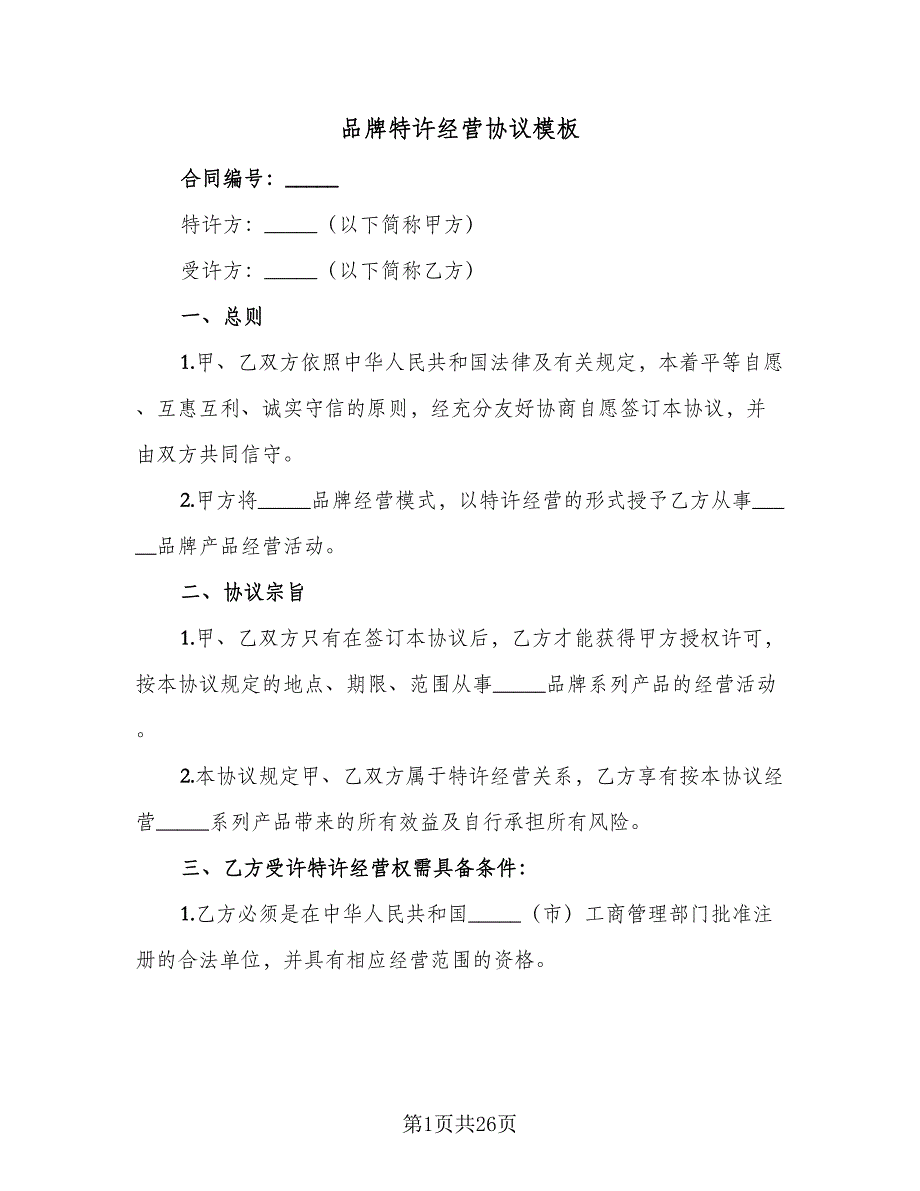 品牌特许经营协议模板
合同编号：_____
特许方：_____（以下简称甲方）
受许方：_____（以下简称乙方）
一、总则
1.甲、乙双方依照中华人民共和国法律及有关规定，本着平等自愿
、互惠互利、诚实守信的原则，经充分友好协商自愿签订本协议，并
由双方共同信守。
2.甲方将_____品牌经营模式，以特许经营的形式授予乙方从事___
__品牌产品经营活动。
二、协议宗旨
1.甲、乙双方只有在签订本协议后，乙方才能获得甲方授权许可，
按本协议规定的地点、期限、范围从事_____品牌系列产品的经营活动
。
2.本协议规定甲、乙双方属于特许经营关系，乙方享有按本协议经
营_____系列产品带来的所有效益及自行承担所有风险。
三、乙方受许特许经营权需具备条件：
1.乙方必须是在中华人民共和国_____（市）工商管理部门批准注
册的合法单位，并具有相应经营范围的资格。
第1页共26页